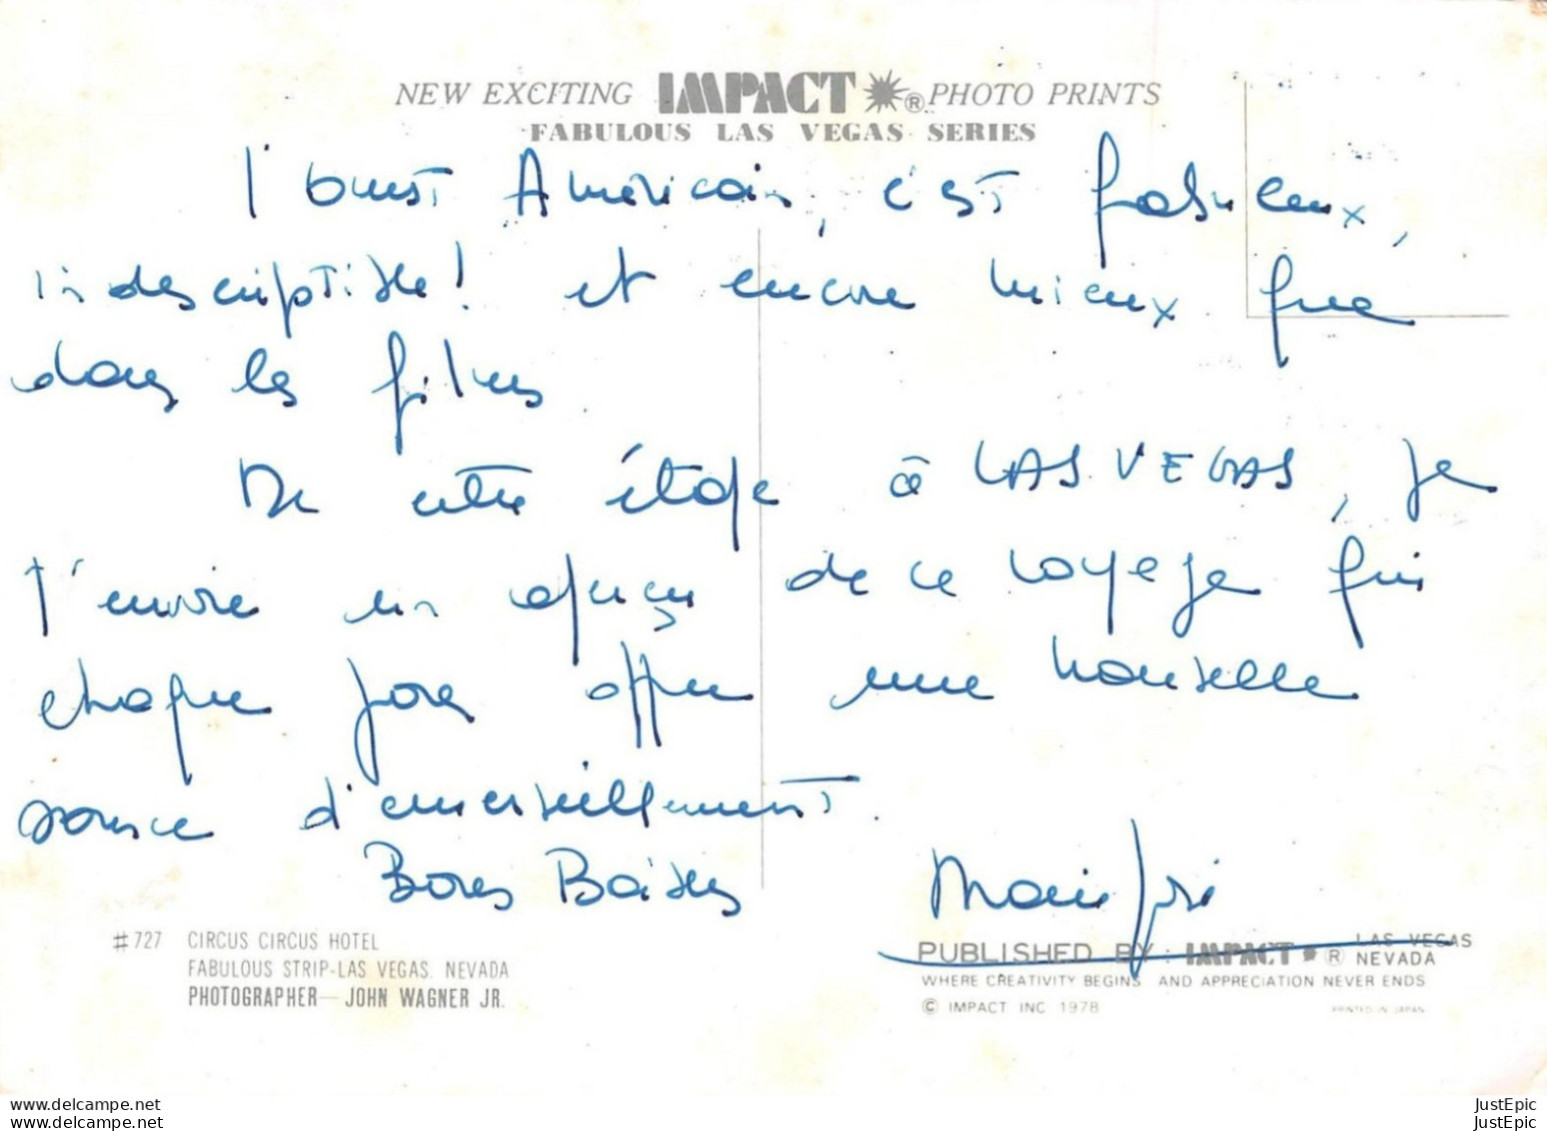 NEW EXCITING IMPACT ® PHOTO PRINTS
FABULOUS LAS VEGAS SERIES
l'ouest Américain, c'est fabuleux,
indescriptible! et encore mieux que
dans les films.
De cette étape à LAS VEGAS, je
t'envoie un aperçu de ce voyage qui
chaque jour offre une nouvelle
source d'émerveillement.
Bons Baisers
#727 CIRCUS CIRCUS HOTEL
FABULOUS STRIP-LAS VEGAS, NEVADA
PHOTOGRAPHER—JOHN WAGNER JR.
PUBLISHED BY: IMPACT ® LAS VEGAS
NEVADA
WHERE CREATIVITY BEGINS AND APPRECIATION NEVER ENDS
© IMPACT INC 1978 PRINTED IN JAPAN
www.delcampe.net JustEpic
www.delcampe.net JustEpic